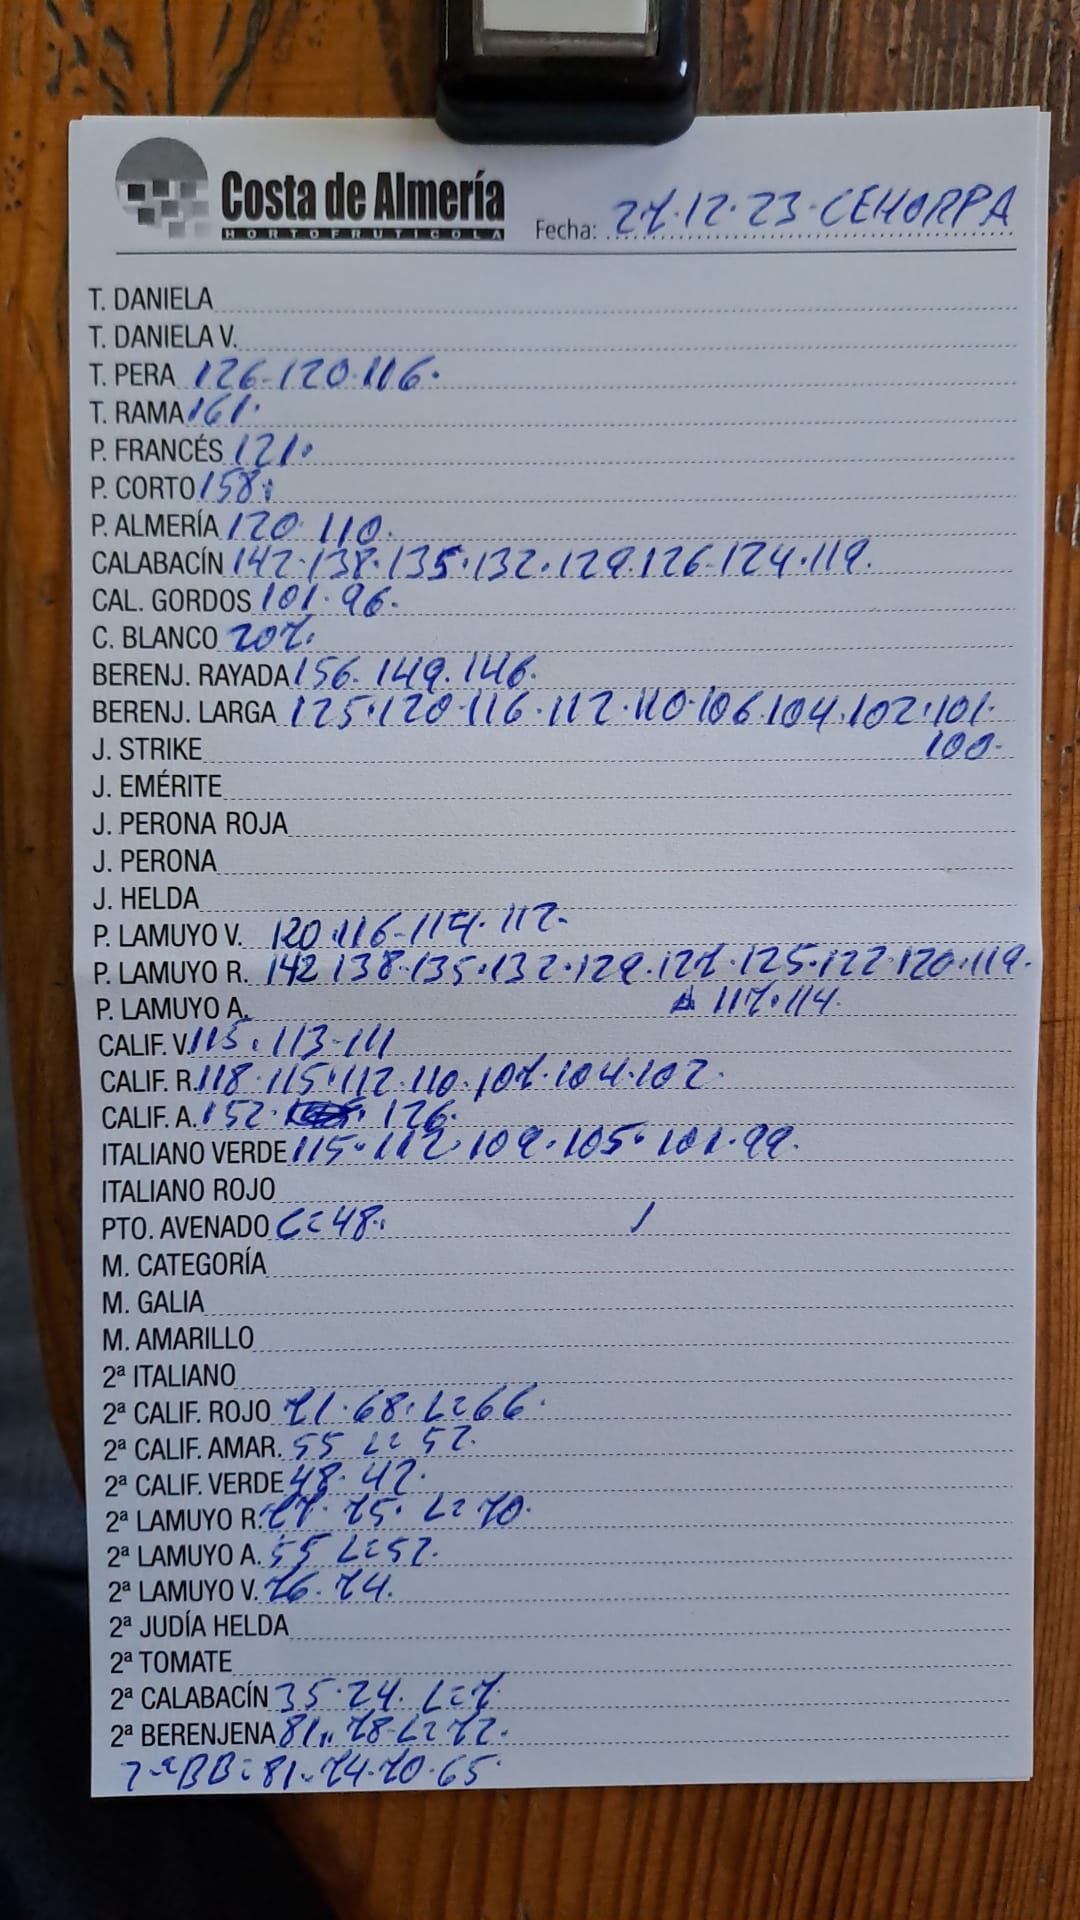 Costa de Almería
HORTOFRUTICOLA
Fecha: 27.12.23.CEHORPA
T. DANIELA
T. DANIELA V.
T. PERA 126-120.116.
T. RAMA 161.
P. FRANCÉS 121.
P. CORTO 158.
P. ALMERÍA 120. 110.
CALABACÍN 142.138.135.132.129.126.124.119.
CAL. GORDOS 101.96.
C. BLANCO 207.
BERENJ. RAYADA 156.149.146.
BERENJ. LARGA 125.120.116.112.110.106.104.102.101.
J. STRIKE 100.
J. EMÉRITE
J. PERONA ROJA
J. PERONA
J. HELDA
P. LAMUYO V. 120.116-114.112.
P. LAMUYO R. 142 138.135.132.129.127.125.122.120.119.
P. LAMUYO A. 117.114.
CALIF. V. 115.113-111
CALIF. R. 118.115.112.110.107.104.102.
CALIF. A. 152. 126.
ITALIANO VERDE 115.112.109.105.101.99.
ITALIANO ROJO
PTO. AVENADO C=48.
M. CATEGORÍA
M. GALIA
M. AMARILLO
2ª ITALIANO
2ª CALIF. ROJO 71.68.L=66.
2ª CALIF. AMAR. 55 L=52.
2ª CALIF. VERDE 48.42.
2ª LAMUYO R. 77.75. L=70.
2ª LAMUYO A. 55 L=52.
2ª LAMUYO V. 76.74.
2ª JUDÍA HELDA
2ª TOMATE
2ª CALABACÍN 35.24. L=7.
2ª BERENJENA 81.. 78-L=72.
2ªBB=81.74.70.65.